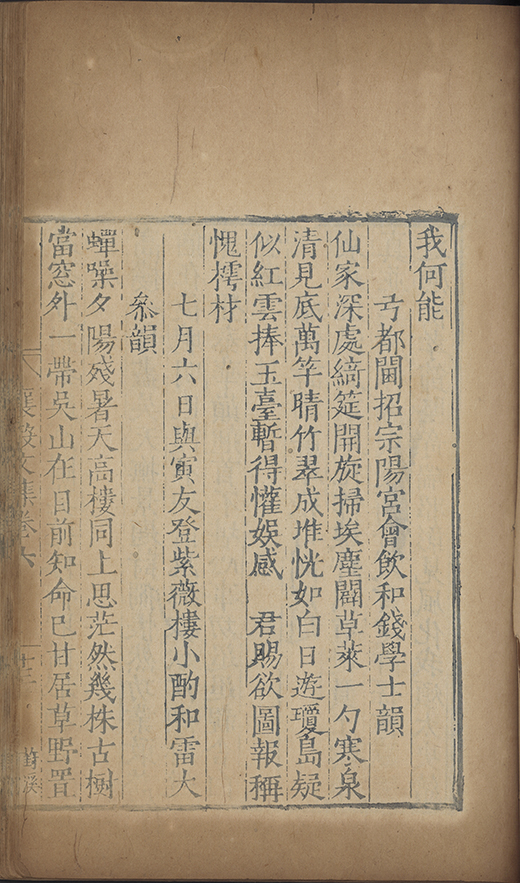 我何能
都閫招宗陽宮會飲和錢學士韻
仙家深處綺筵開旋掃埃塵闢草萊一勺寒泉
清見底萬竿晴竹翠成堆恍如白日遊瓊島疑
似紅雲捧玉臺暫得懽娛感 君賜欲圖報稱
愧樗材
七月六日與寅友登紫薇樓小酌和雷大
叅韻
蟬噪夕陽殘暑天高樓同上思茫然幾株古樹
當窓外一帶吳山在目前知命已甘居草野置
襄毅文集卷六